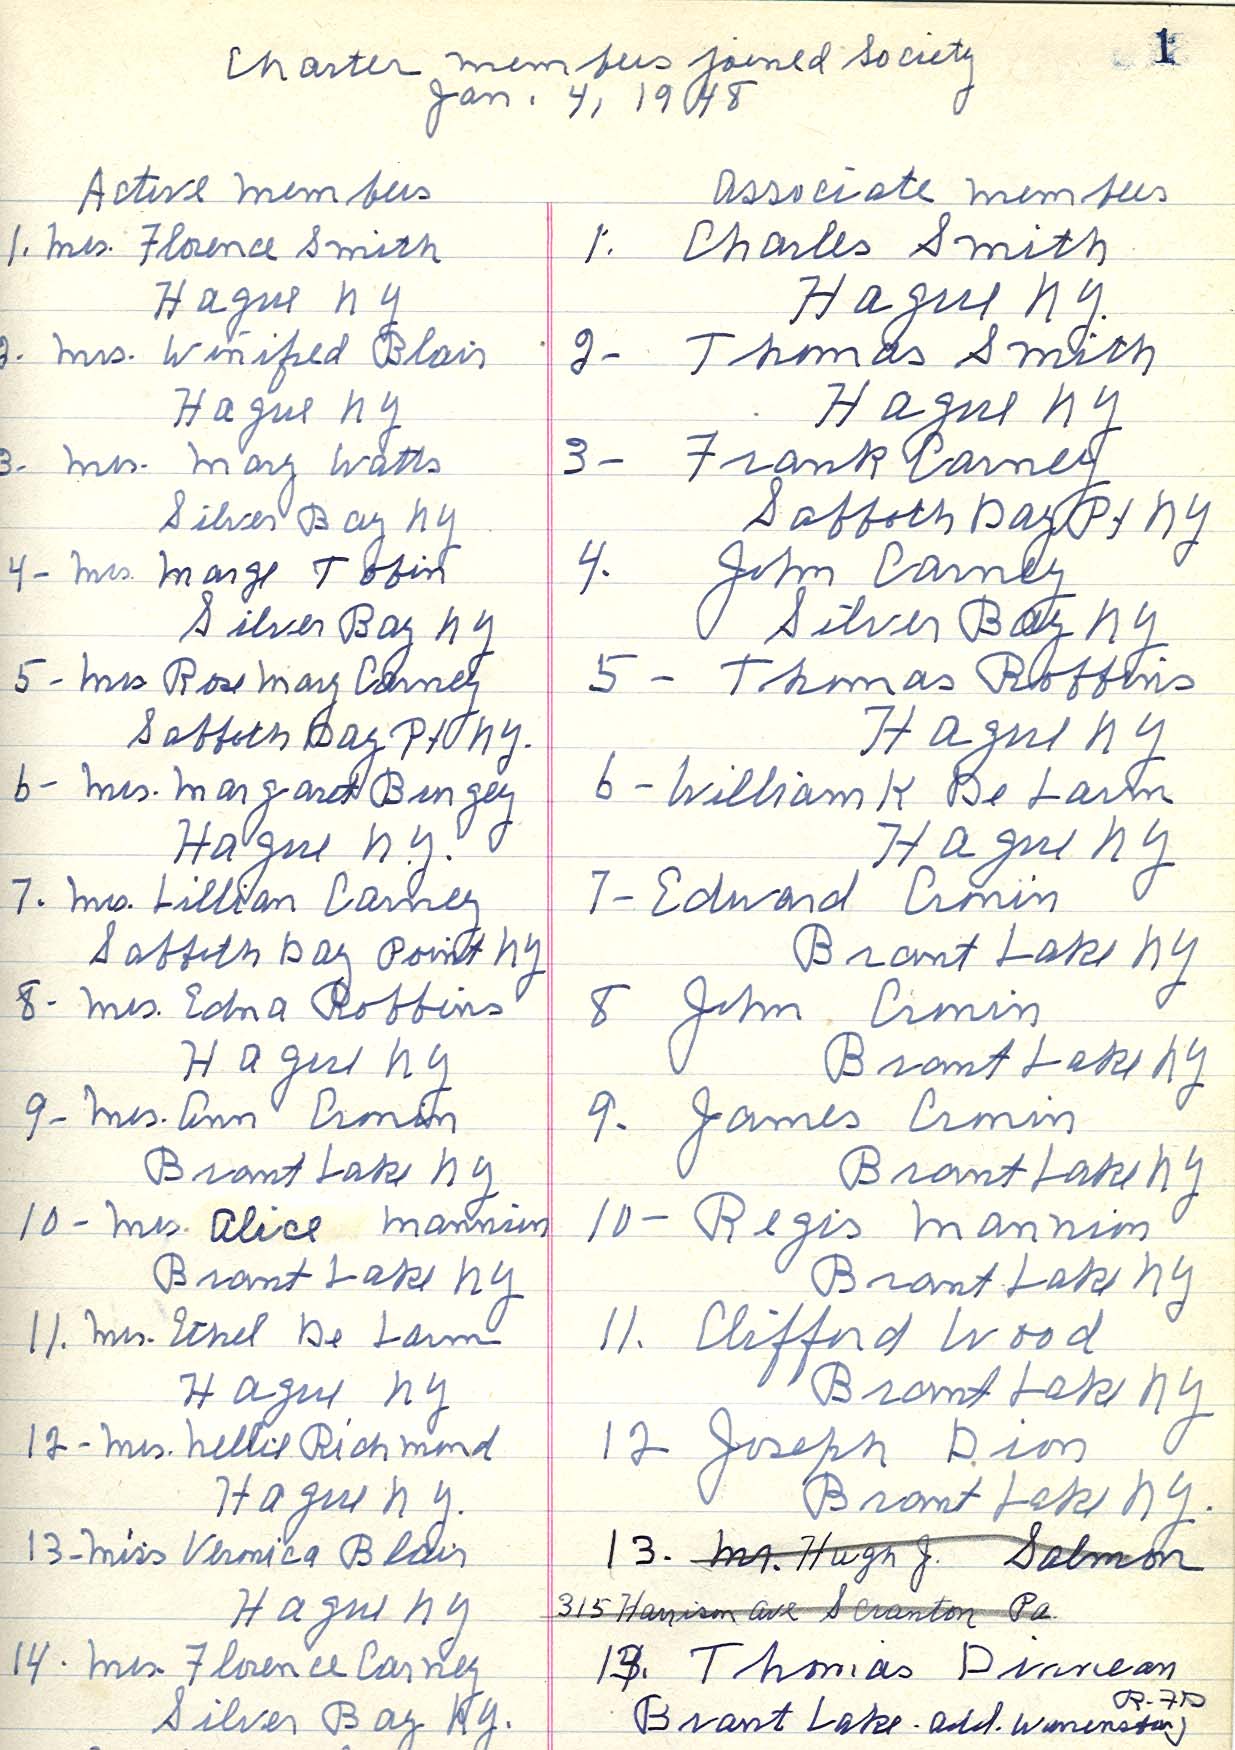 1
Charter members joined Society
Jan. 4, 1948
Active members
1. Mrs. Florence Smith
Hague NY
2. Mrs. Winifred Blair
Hague NY
3- Mrs. Mary Watts
Silver Bay NY
4- Mrs. Marge Tobin
Silver Bay NY
5- Mrs Rose Mary Carney
Sabboth Day Pt NY.
6- Mrs. Margaret Bingey
Hague N.Y.
7. Mrs. Lillian Carney
Sabboth Day Point NY
8- Mrs. Edna Robbins
Hague NY
9- Mrs. Ann Cronin
Brant Lake NY
10- Mrs. Alice Mannion
Brant Lake NY
11. Mrs. Ethel De Larm
Hague NY
12- Mrs. Nellie Richmond
Hague NY.
13- Miss Veronica Blair
Hague NY
14. Mrs. Florence Carney
Silver Bay NY.
Associate members
1. Charles Smith
Hague NY.
2- Thomas Smith
Hague NY
3- Frank Carney
Sabboth Day Pt NY
4. John Carney
Silver Bay NY
5- Thomas Robbins
Hague NY
6- William K De Larm
Hague NY
7- Edward Cronin
Brant Lake NY
8 John Cronin
Brant Lake NY
9. James Cronin
Brant Lake NY
10- Regis Mannion
Brant Lake NY
11. Clifford Wood
Brant Lake NY
12 Joseph Dion
Brant Lake NY.
13. Mr. Hugh J. Salmon
315 Harrison Ave Scranton Pa.
13. Thomas Dinnean
R.F.D
Brant Lake. add.